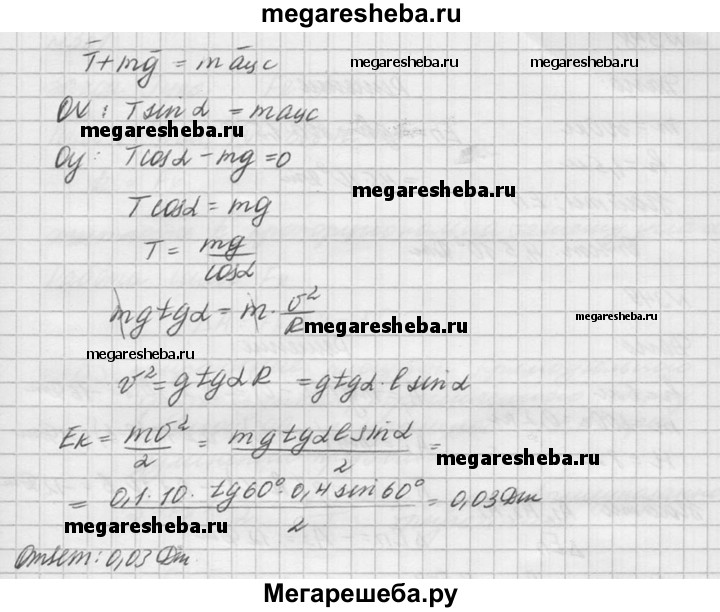 megaresheba.ru
T̄+mḡ = māцс
megaresheba.ru megaresheba.ru
OX : T sin α = maцс
megaresheba.ru
Oy: Tcosα - mg = 0
megaresheba.ru
T cosα = mg
T = mg/cosα
mgtgα = m · υ²/R
megaresheba.ru megaresheba.ru
megaresheba.ru
υ² = gtgα R = gtgα · l sin α
Eк = mυ²/2 = mgtgα l sin α/2 =
megaresheba.ru
= 0,1 · 10 · tg60° · 0,4 sin 60°/2 = 0,03 Дж
megaresheba.ru
Ответ: 0,03 Дж.
Мегарешеба.ру